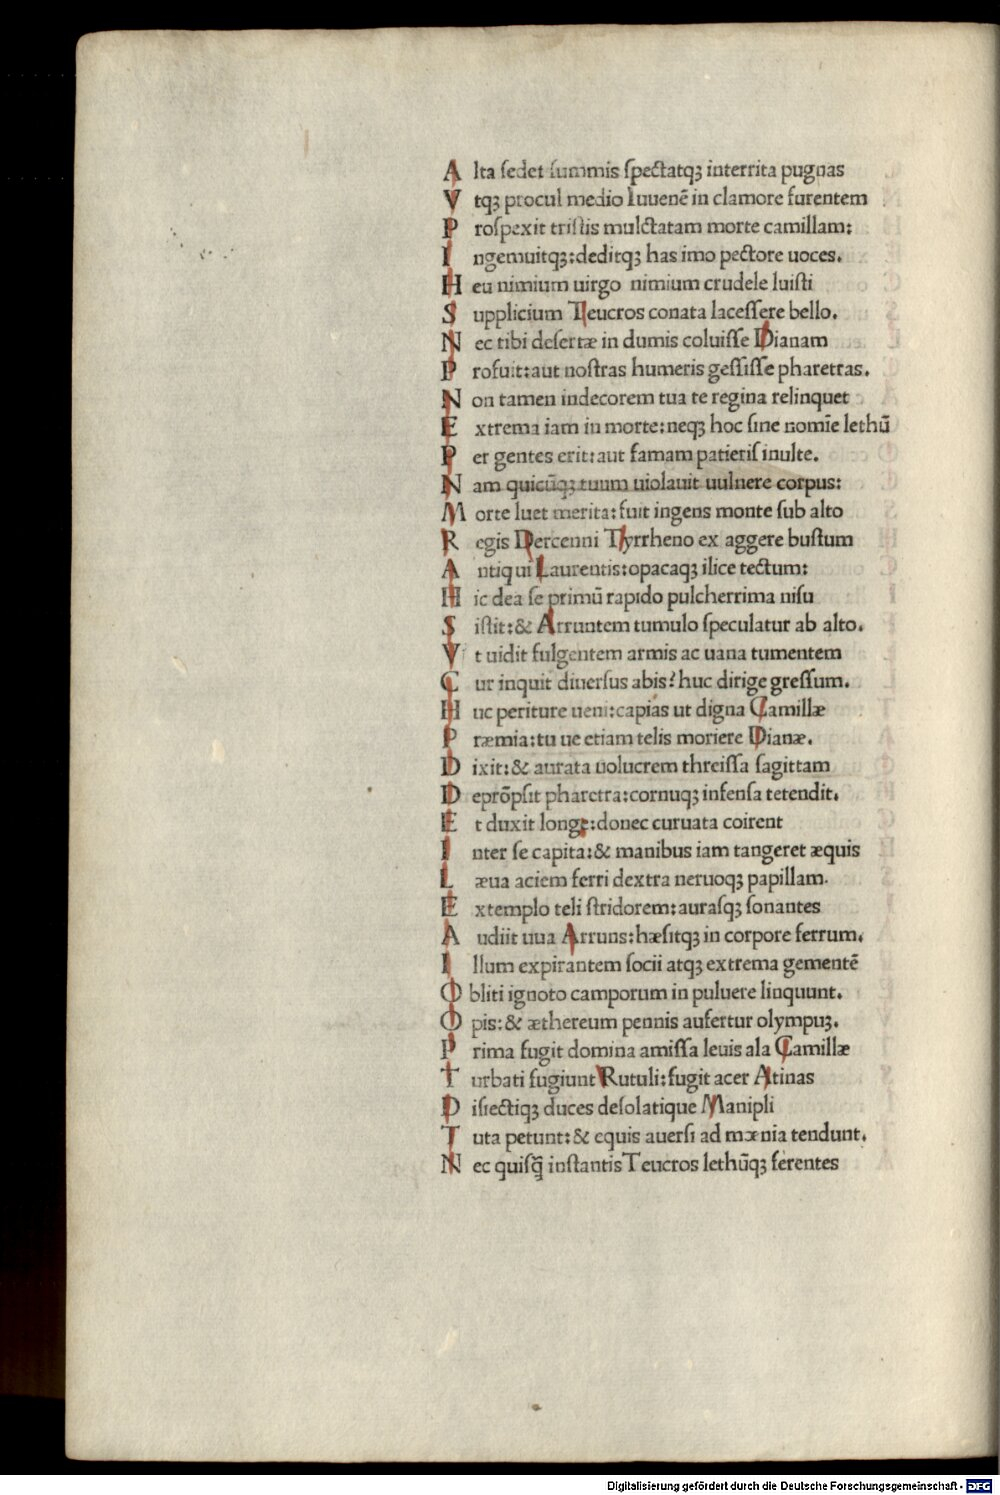 A lta ſedet ſummis ſpectatqꝫ interrita pugnas
V tqꝫ procul medio Iuuenē in clamore furentem
P roſpexit triſtis mulctatam morte camillam:
I ngemuitqꝫ:deditqꝫ has imo pectore uoces.
H eu nimium uirgo nimium crudele luiſti
S upplicium Teucros conata laceſſere bello.
N ec tibi deſertæ in dumis coluiſſe Dianam
P rofuit:aut noſtras humeris geſſiſſe pharetras.
N on tamen indecorem tua te regina relinquet
E xtrema iam in morte:neqꝫ hoc ſine nomīe lethū
P er gentes erit:aut famam patieriſ inulte.
N am quicūqꝫ tuum uiolauit uulnere corpus:
M orte luet merita:fuit ingens monte ſub alto
R egis Dercenni Tyrrheno ex aggere buſtum
A ntiqui Laurentis:opacaqꝫ ilice tectum:
H ic dea ſe primū rapido pulcherrima niſu
S iſtit:& Arruntem tumulo ſpeculatur ab alto.
V t uidit fulgentem armis ac uana tumentem
C ur inquit diuerſus abis? huc dirige greſſum.
H uc periture ueni:capias ut digna Camillæ
P ræmia:tu ue etiam telis moriere Dianæ.
D ixit:& aurata uolucrem threiſſa ſagittam
D eprōpſit pharetra:cornuqꝫ infenſa tetendit.
E t duxit longe:donec curuata coirent
I nter ſe capita:& manibus iam tangeret æquis
L æua aciem ferri dextra neruoqꝫ papillam.
E xtemplo teli ſtridorem:auraſqꝫ ſonantes
A udiit uua Arruns:hæſitqꝫ in corpore ferrum.
I llum expirantem ſocii atqꝫ extrema gementē
O bliti ignoto camporum in puluere linquunt.
O pis:& æthereum pennis aufertur olympuꝫ.
P rima fugit domina amiſſa leuis ala Camillæ
T urbati fugiunt Rutuli:fugit acer Atinas
D iſiectiqꝫ duces deſolatique Manipli
T uta petunt:& equis auerſi ad mœnia tendunt.
N ec quiſq̄ inſtantis Teucros lethūqꝫ ferentes
Digitalisierung gefördert durch die Deutsche Forschungsgemeinschaft - DFG